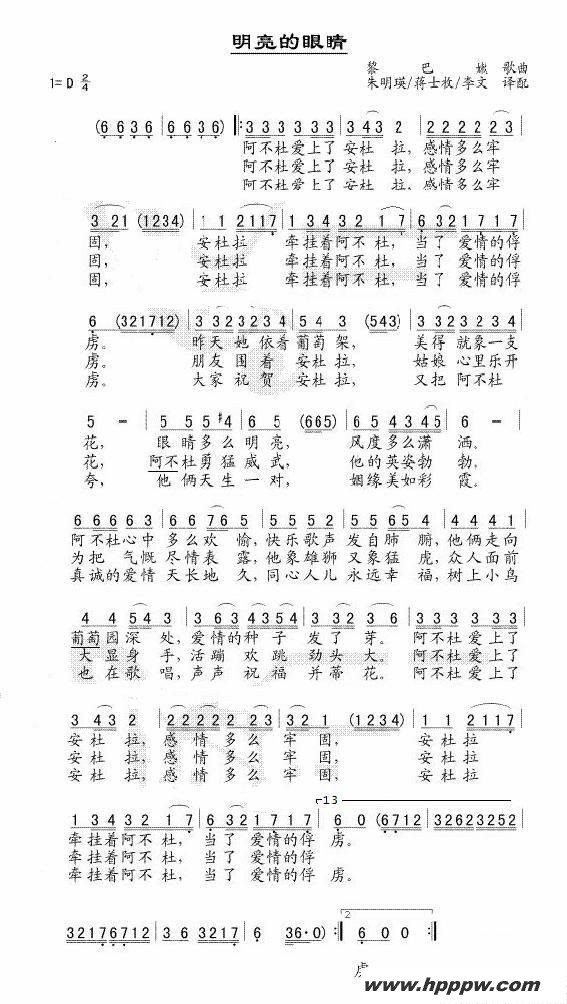 明亮的眼睛
1= D 2/4
黎巴嫩 歌曲
朱明瑛/蒋士枚/李文 译配
(6 6 3 6 | 6 6 3 6) |: 3 3 3 3 3 3 | 3 4 3 2 | 2 2 2 2 2 3 |
阿不杜爱上了 安杜 拉, 感情多么牢
阿不杜爱上了 安杜 拉, 感情多么牢
阿不杜爱上了 安杜 拉, 感情多么牢
3 21 (1234) | 1 1 2117 | 1 34 32 17 | 6 32 1717 |
固, 安杜拉 牵挂着阿不杜, 当了 爱情的俘
固, 安杜拉 牵挂着阿不杜, 当了 爱情的俘
固, 安杜拉 牵挂着阿不杜, 当了 爱情的俘
6 (321712) | 3 323234 | 5 4 3 (543) | 3 3 2 3 4 |
虏。 昨天她依着葡萄架, 美得就象一支
虏。 朋友围着 安杜拉, 姑娘心里乐开
虏。 大家祝贺 安杜拉, 又把阿不杜
5 - | 5 5 5 #4 | 6 5 (665) | 6 5 4 3 4 5 | 6 - |
花, 眼睛多么明亮, 风度多么潇 洒。
花, 阿不杜勇猛威武, 他的英姿勃 勃,
夸, 他俩天生一对, 姻缘美如彩 霞。
6 6 6 6 3 | 6 6 7 6 5 | 5 5 5 5 | 5 5 6 5 4 | 5 5 5 5 |
阿不杜心中 多么欢 愉, 快乐歌声 发自肺 腑, 他俩走向
为把 气慨 尽情表 露, 他象雄狮 又象猛 虎, 众人面前
真诚的爱情 天长地 久, 同心人儿 永远幸 福, 树上小鸟
4 4 5 4 3 | 3 6 3 6 | 3 4 3 2 | 3 3 3 3 3 3 |
葡萄园深 处, 爱情的种 子 发了 芽。 阿不杜爱上了
大显身 手, 活蹦欢跳 劲头大。 阿不杜爱上了
也在歌 唱, 声声祝福 并蒂花。 阿不杜爱上了
3 43 2 | 2 2 2 2 2 3 | 32 1 (1234) | 1 1 2117 |
安杜拉, 感情多么 牢固, 安杜拉
安杜拉, 感情多么 牢固, 安杜拉
安杜拉, 感情多么 牢固, 安杜拉
13
1 34 32 17 | 6 32 1717 | 6 0 (6712 | 32623252
牵挂着阿不杜, 当了 爱情的俘 虏。
牵挂着阿不杜, 当了 爱情的俘 虏。
牵挂着阿不杜, 当了 爱情的俘 虏。
2
32176712 | 32173217 | 6 36·0) :| 6 0 0 :|
虏
www.hpppw.com